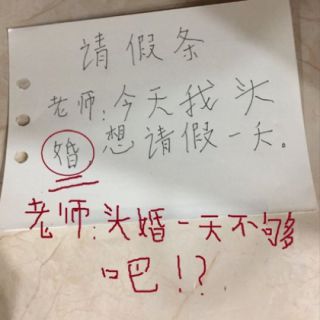 请假条
老师:今天我头
婚.想请假一天。
老师:头婚一天不够
吧!?